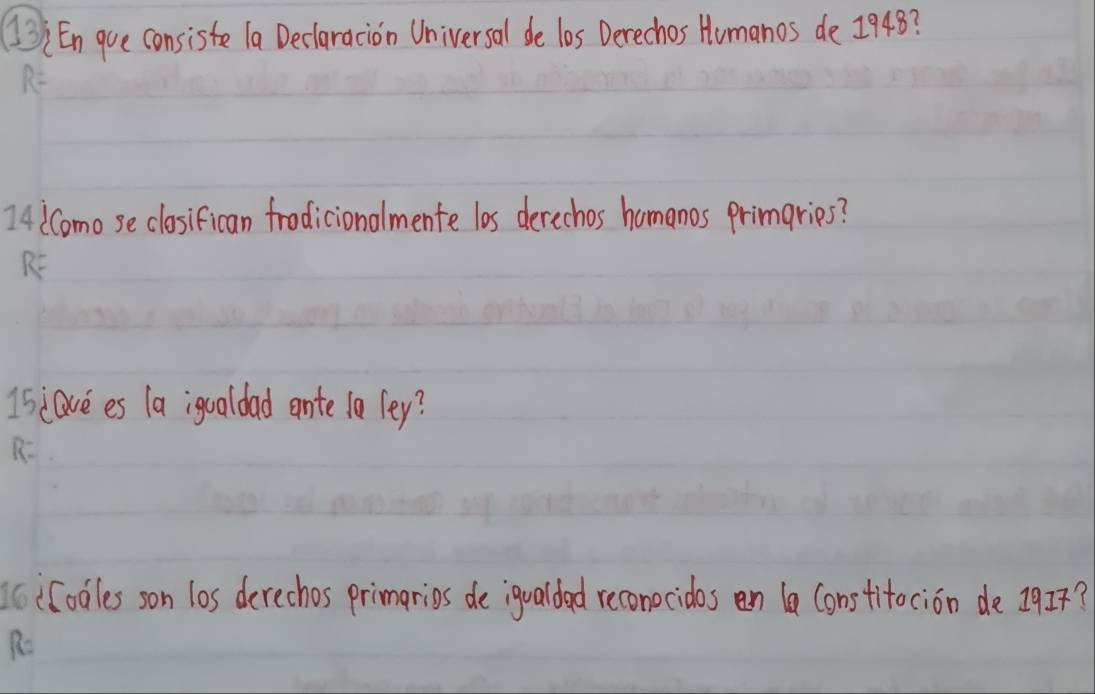 13 ¿En que consiste la Declaración Universal de los Derechos Humanos de 1948?
R=
14 ¿Como se clasifican tradicionalmente los derechos humanos primarios?
R=
15 ¿Qué es la igualdad ante la ley?
R=
16 ¿Cuáles son los derechos primarios de igualdad reconocidos en la Constitución de 1917?
R=